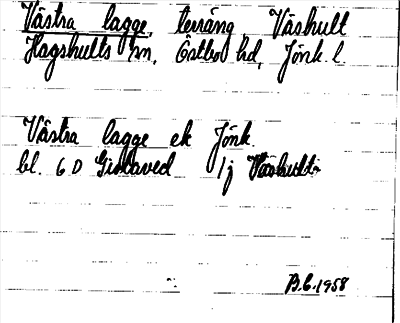 Västra lagge, terräng, Våshult
Hagshults sn, Östbo hd, Jönk. l.
Västra lagge ek Jönk.
bl. 6 D Gislaved 1j Våshult
B.E. 1958